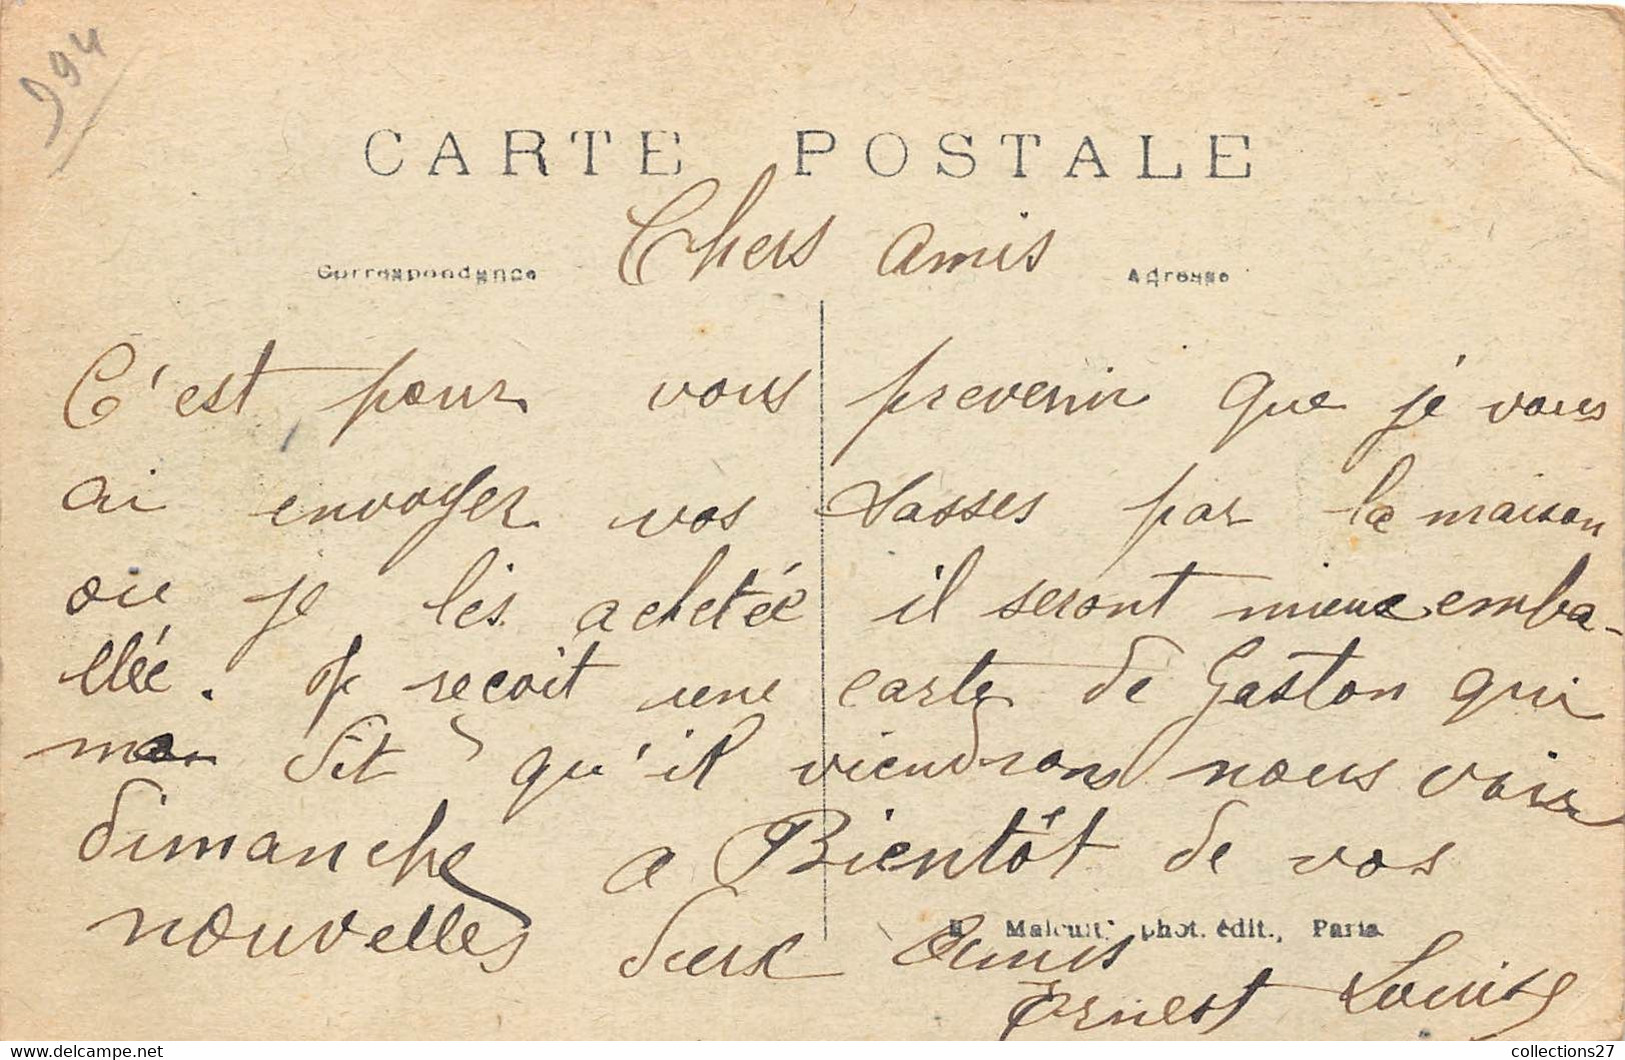 994
CARTE POSTALE
Chers amis
Correspondance
Adresse
C'est pour vous prevenir que je vous
ai envoyer vos tasses par la maison
ou je les achetée il seront mieux emba-
llée. Je reçoit une carte de Gaston qui
mon dit qu'il viendrons nous voir
dimanche a Bientôt de vos
nouvelles deux Amis
Malcuit, phot. édit., Paris
Ernest Louise
collections27